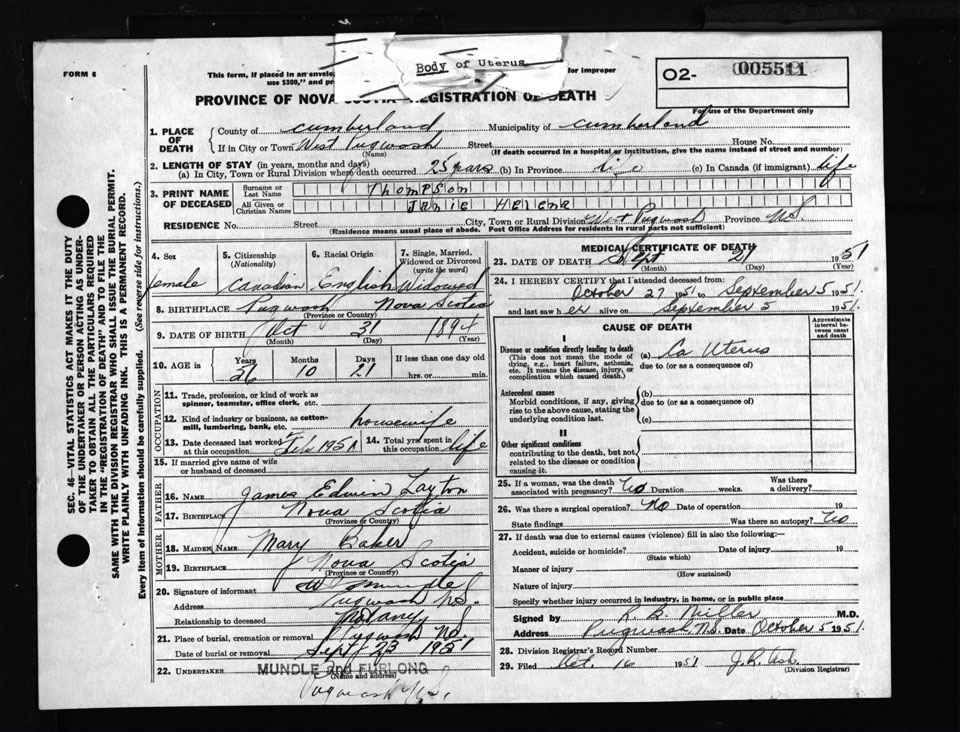 FORM 6
This form, if placed in an envelop
use $300," and pr
for improper
Body of Uterus
O2- 005511
For use of the Department only
PROVINCE OF NOVA SCOTIA REGISTRATION OF DEATH
1. PLACE OF DEATH
County of Cumberland Municipality of Cumberland
If in City or Town West Pugwash Street House No.
(Name) (If death occurred in a hospital or institution, give the name instead of street and number)
2. LENGTH OF STAY (in years, months and days)
(a) In City, Town or Rural Division where death occurred 25 years (b) In Province life (c) In Canada (if immigrant) life
3. PRINT NAME OF DECEASED
Surname or Last Name Thompson
All Given or Christian Names Janie Helena
RESIDENCE No. Street City, Town or Rural Division West Pugwash Province N.S.
(Residence means usual place of abode. Post Office Address for residents in rural parts not sufficient)
4. Sex female
5. Citizenship (Nationality) Canadian
6. Racial Origin English
7. Single, Married, Widowed or Divorced (write the word) Widowed
8. BIRTHPLACE Pugwash Nova Scotia
(Province or Country)
9. DATE OF BIRTH Oct 31 1894
(Month) (Day) (Year)
10. AGE in Years Months 10 Days 21 If less than one day old
hrs. or min.
OCCUPATION
11. Trade, profession, or kind of work as spinner, teamster, office clerk, etc.
12. Kind of industry or business, as cotton-mill, lumbering, bank, etc. housewife
13. Date deceased last worked at this occupation Feb 1951 14. Total yrs. spent in this occupation life
15. If married give name of wife or husband of deceased
FATHER
16. NAME James Edwin Layton
17. BIRTHPLACE Nova Scotia
(Province or Country)
MOTHER
18. MAIDEN NAME Mary Baker
19. BIRTHPLACE Nova Scotia
(Province or Country)
20. Signature of informant W Mundle
Address Pugwash N.S.
Relationship to deceased Not any
21. Place of burial, cremation or removal Pugwash N.S.
Date of burial or removal Sept 23 1951
22. UNDERTAKER MUNDLE and FURLONG
(Name and address)
Pugwash N.S.
MEDICAL CERTIFICATE OF DEATH
23. DATE OF DEATH Sept 21 1951
(Month) (Day) (Year)
24. I HEREBY CERTIFY that I attended deceased from:
October 27 1951 to September 5 1951.
and last saw her alive on September 5 1951.
CAUSE OF DEATH
Approximate interval between onset and death
I
Disease or condition directly leading to death
(This does not mean the mode of dying, e.g., heart failure, asthenia, etc. It means the disease, injury, or complication which caused death.)
(a) Ca Uterus
due to (or as a consequence of)
Antecedent causes
Morbid conditions, if any, giving rise to the above cause, stating the underlying condition last.
(b)
due to (or as a consequence of)
(c)
II
Other significant conditions
contributing to the death, but not related to the disease or condition causing it.
25. If a woman, was the death associated with pregnancy? No Duration weeks. Was there a delivery?
26. Was there a surgical operation? No Date of operation 19
State findings Was there an autopsy? No
27. If death was due to external causes (violence) fill in also the following:
Accident, suicide or homicide? Date of injury 19
(State which)
Manner of injury
(How sustained)
Nature of injury
Specify whether injury occurred in industry, in home, or in public place
Signed by R. B. Miller M.D.
Address Pugwash N.S. Date October 5 1951.
28. Division Registrar's Record Number
29. Filed Oct. 16 1951 J. R.
(Division Registrar)
SEC. 46—VITAL STATISTICS ACT MAKES IT THE DUTY
OF THE UNDERTAKER OR PERSON ACTING AS UNDER-
TAKER TO OBTAIN ALL THE PARTICULARS REQUIRED
IN THE "REGISTRATION OF DEATH" AND TO FILE THE
SAME WITH THE DIVISION REGISTRAR WHO SHALL ISSUE THE BURIAL PERMIT.
WRITE PLAINLY WITH UNFADING INK. THIS IS A PERMANENT RECORD.
Every item of information should be carefully supplied. (See reverse side for instructions.)